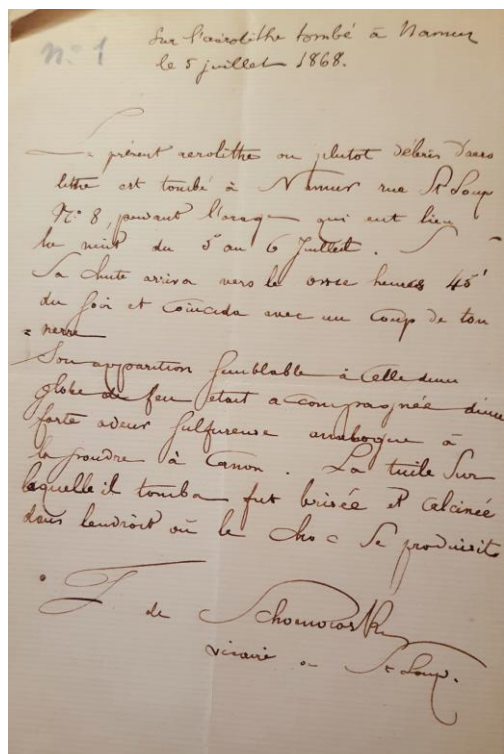 N° 1
Sur l'aérolithe tombé à Namur
le 5 juillet 1868.
Le présent aerolithe ou plutot débris d'aero
lithe est tombé à Namur rue St Loup
N° 8, pendant l'orage qui eut lieu
la nuit du 5 au 6 Juillet.
Sa chute arriva vers le onse heures 45'
du soir et coincida avec un coup de ton
nerre
Son apparition semblable à celle d'un
globe de feu etait accompagnée d'une
forte odeur sulfureuse analogue à
la poudre à canon. La tuile sur
laquelle il tomba fut brisée et calcinée
dans l'endroit où le choc se produisit
F de
vicaire a St Loup.